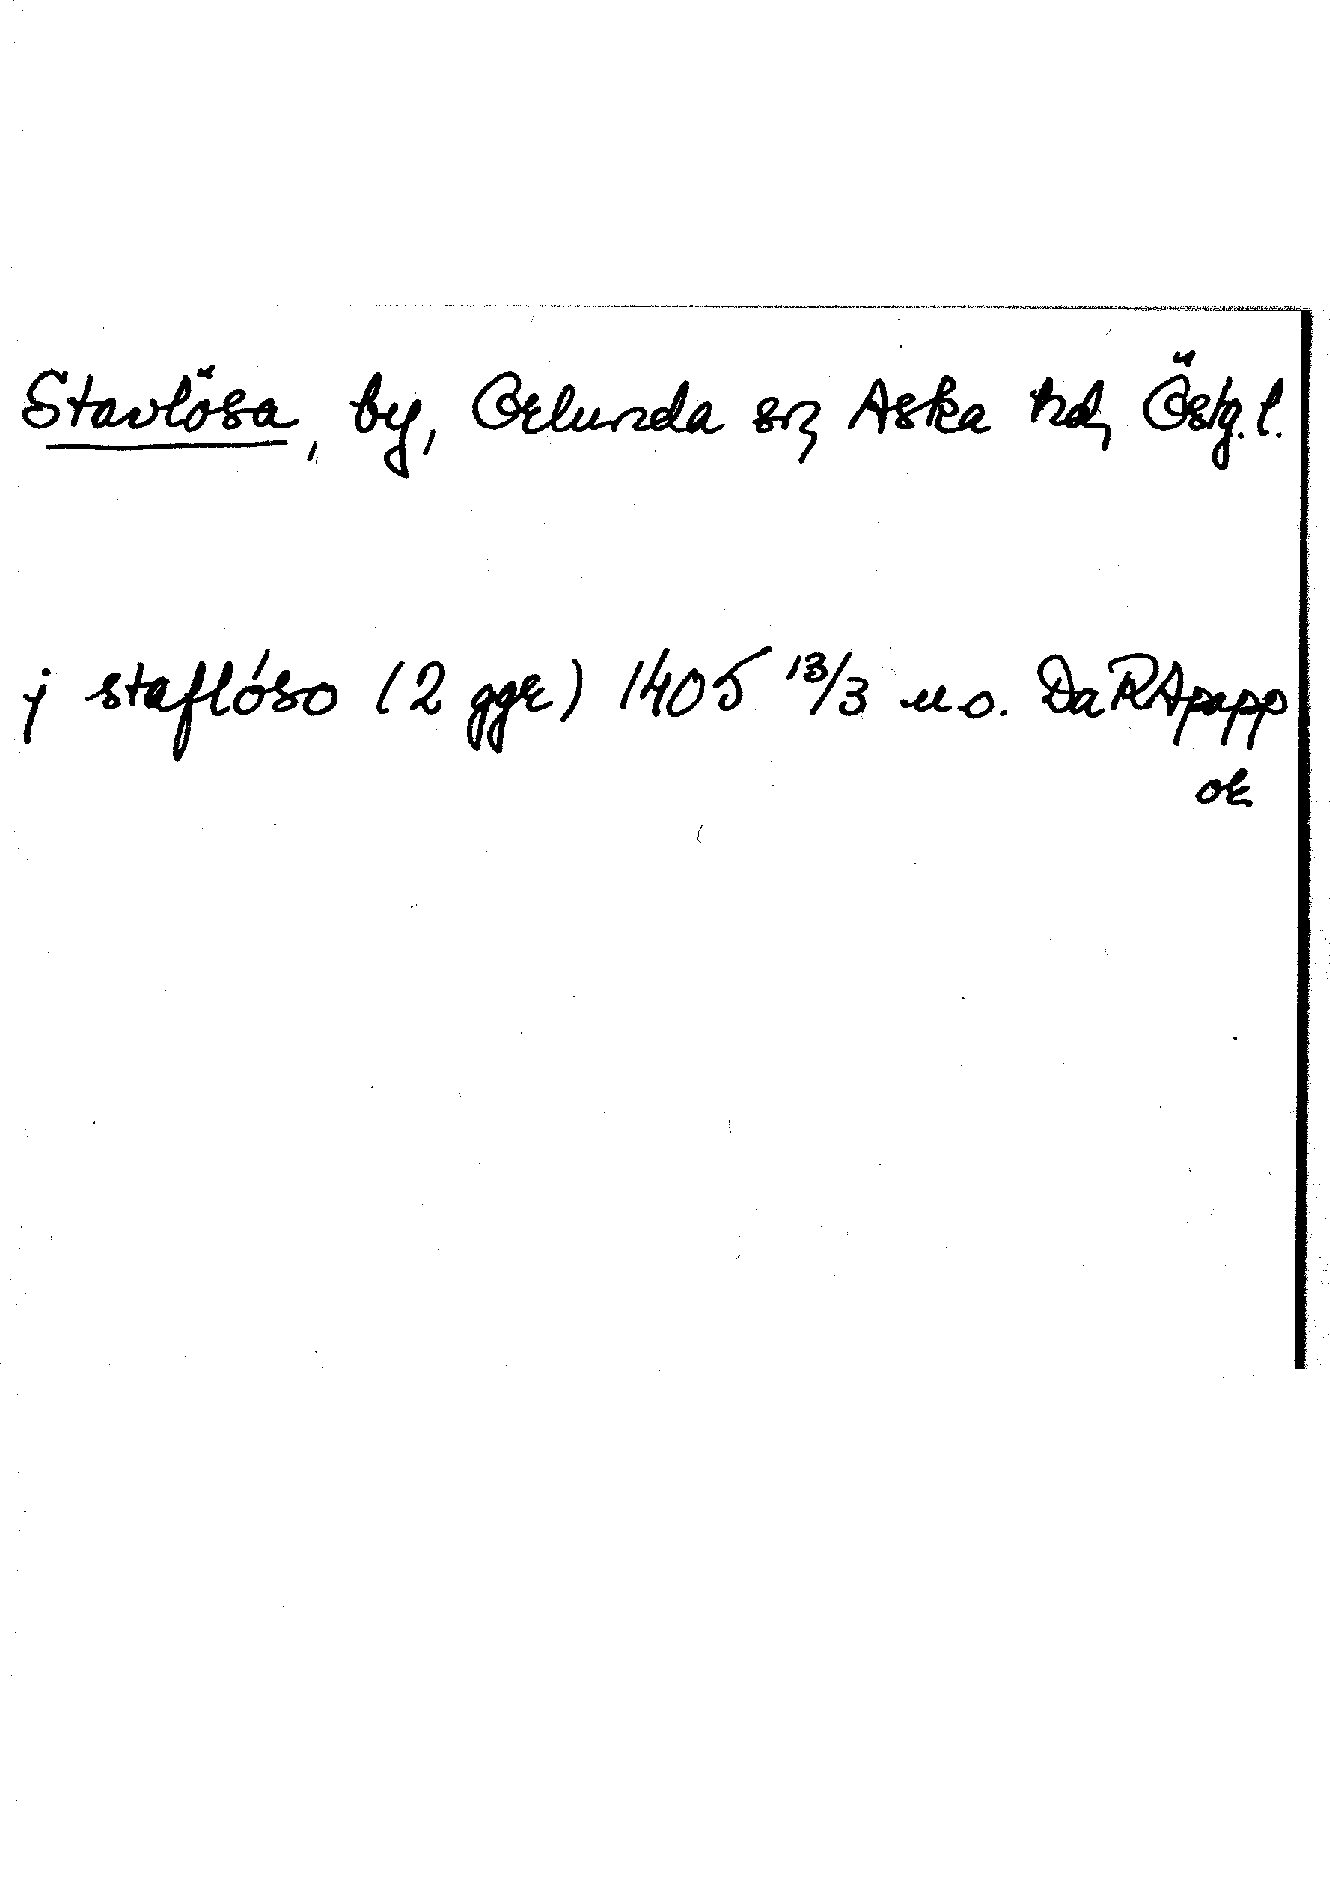 Stavlösa, by, Orlunda sn, Aska hd, Östg. l.
j staflóso (2 ggr) 1405 13/3 u o. DaRApapp
or